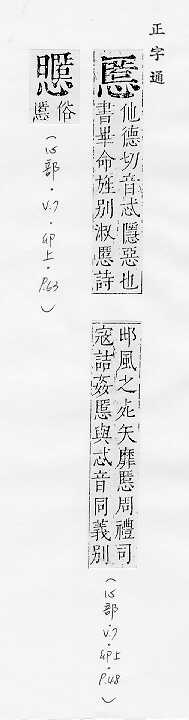 正字通
慝
他德切音忒隱惡也
書畢命旌別淑慝詩
邶風之死矢靡慝周禮司
寇詰姦慝與忒音同義別
(心部·V.7·卯上·P.48)
俗
慝
(心部·V.7·卯上·P.63)